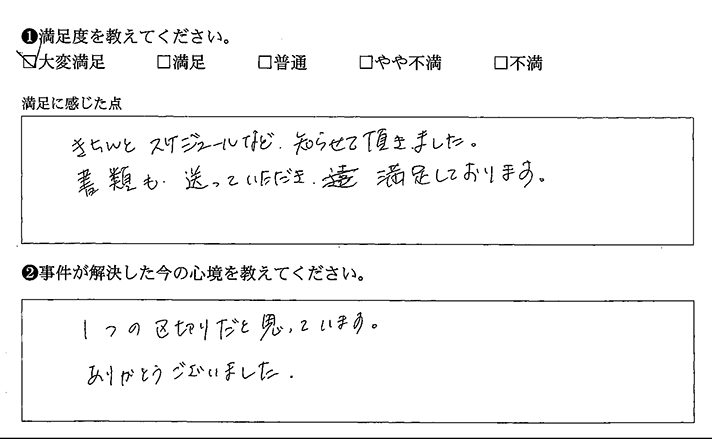 ❶満足度を教えてください。
☑大変満足 □満足 □普通 □やや不満 □不満
満足に感じた点
きちんと スケジュールなど、知らせて頂きました。
書類も、送っていただき、満足しております。
❷事件が解決した今の心境を教えてください。
1つの区切りだと思っています。
ありがとうございました.